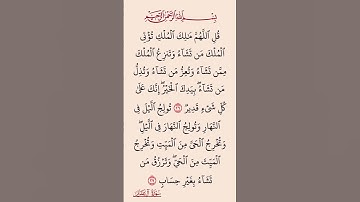 بِسْمِ اللَّهِ الرَّحْمَٰنِ الرَّحِيمِ
قُلِ ٱللَّهُمَّ مَـٰلِكَ ٱلْمُلْكِ تُؤْتِى
ٱلْمُلْكَ مَن تَشَآءُ وَتَنزِعُ ٱلْمُلْكَ
مِمَّن تَشَآءُ وَتُعِزُّ مَن تَشَآءُ وَتُذِلُّ
مَن تَشَآءُ ۖ بِيَدِكَ ٱلْخَيْرُ ۖ إِنَّكَ عَلَىٰ
كُلِّ شَىْءٍ قَدِيرٌ ٢٦ تُولِجُ ٱلَّيْلَ فِى
ٱلنَّهَارِ وَتُولِجُ ٱلنَّهَارَ فِى ٱلَّيْلِ ۖ
وَتُخْرِجُ ٱلْحَىَّ مِنَ ٱلْمَيِّتِ وَتُخْرِجُ
ٱلْمَيِّتَ مِنَ ٱلْحَىِّ ۖ وَتَرْزُقُ مَن
تَشَآءُ بِغَيْرِ حِسَابٍ ٢٧